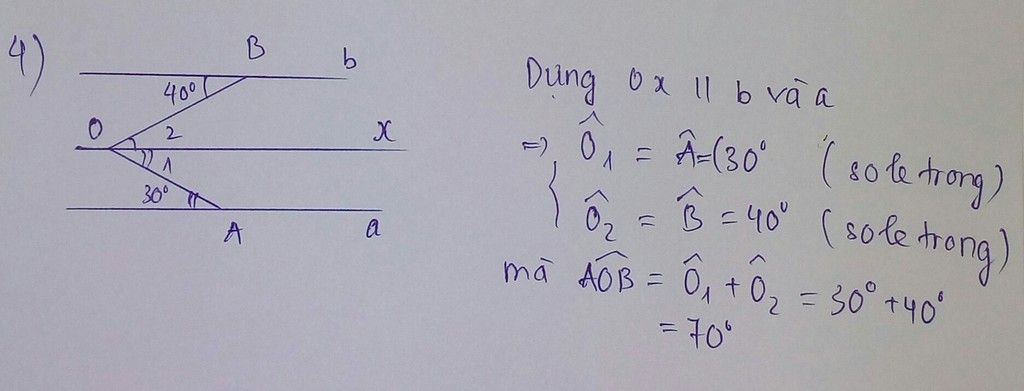 4)
B
b
40°
O
2
x
1
30°
A
a
Dựng Ox // b và a
=> { Ô₁ = Â = (30° (so le trong)
Ô₂ = B̂ = 40° (so le trong)
mà AÔB = Ô₁ + Ô₂ = 30° + 40°
= 70°